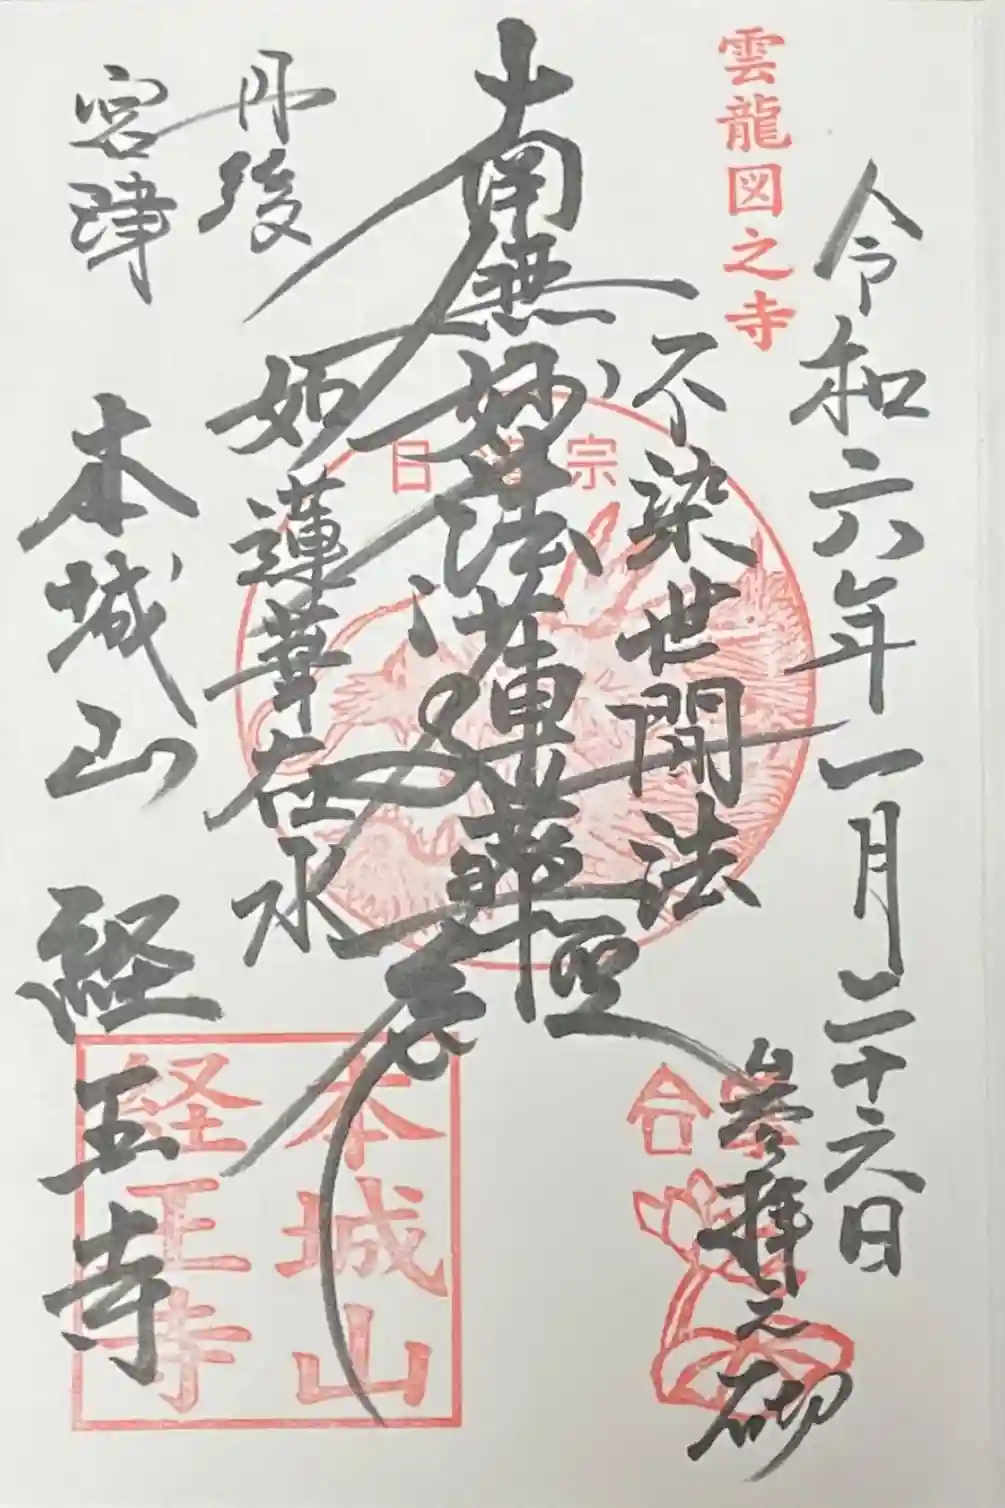 令和六年一月二十六日
参拝之砌
雲龍図之寺
不染世間法
南無妙法蓮華経
如蓮華在水
丹後
宮津
本城山 経王寺
日蓮宗
合掌
本城山
経王寺